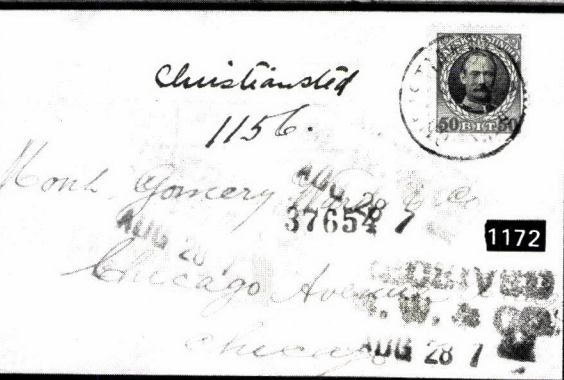 Christiansted
1156.
50 BIT 50
Mont. Gomery Ward & Co
AUG 28
37654 7
1172
AUG 28
Chicago Avenue
RECEIVED
M. W. & CO.
Chicago
AUG 28 1